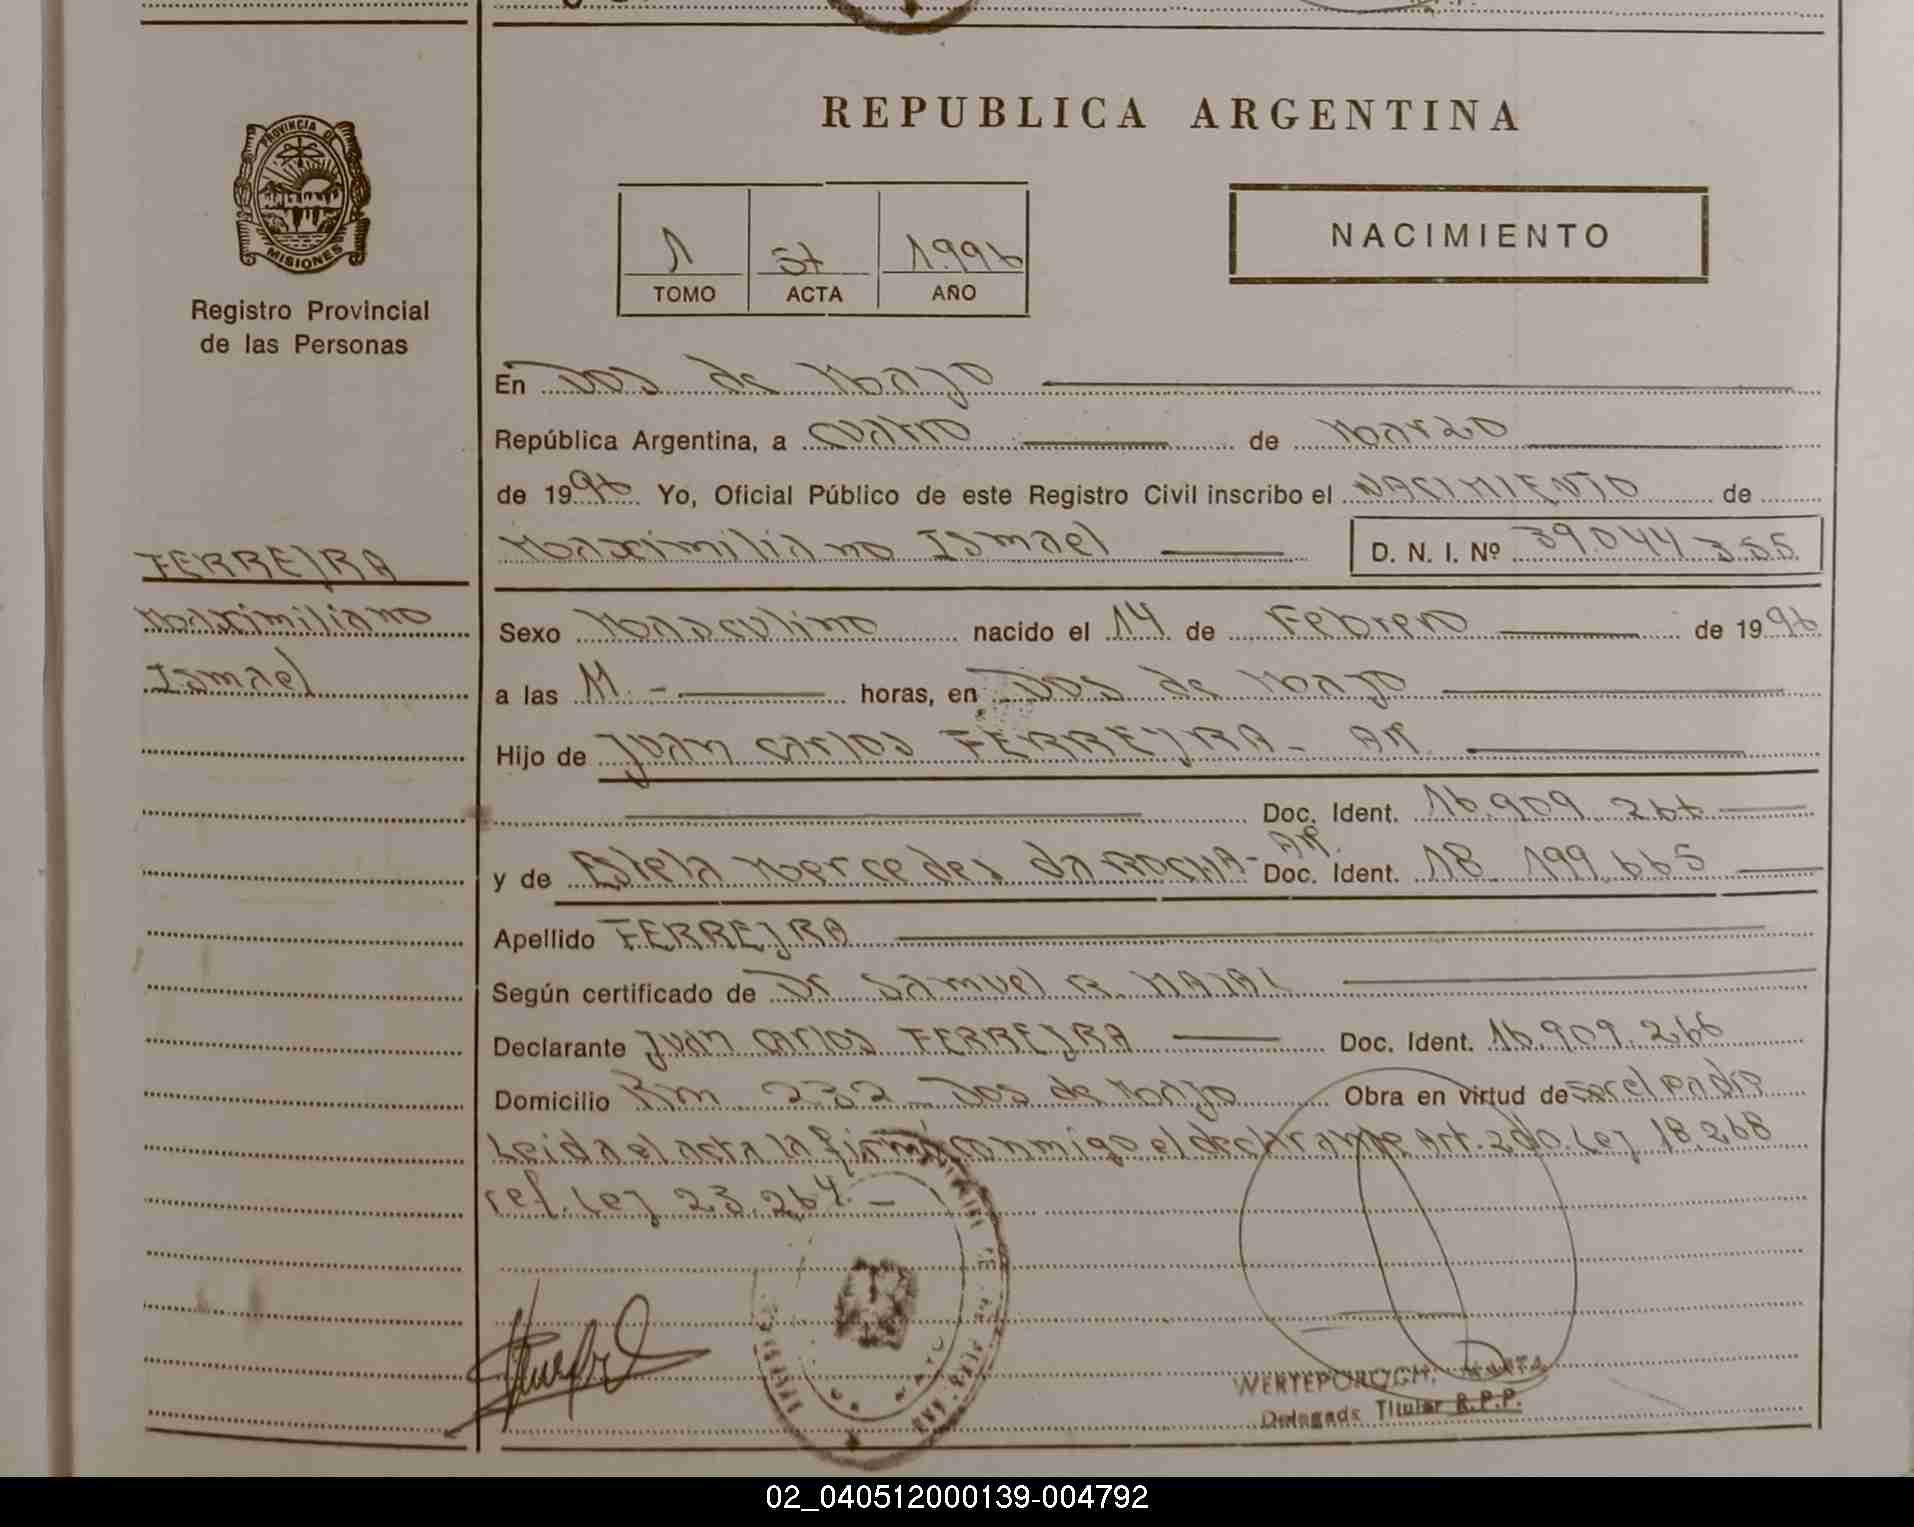 REPUBLICA ARGENTINA
PROVINCIA DE
MISIONES
Registro Provincial
de las Personas
1 1996
TOMO ACTA AÑO
NACIMIENTO
En Dos de Mayo
República Argentina, a cuatro de Marzo
de 1996 Yo, Oficial Público de este Registro Civil inscribo el NACIMIENTO de
Maximiliano Ismael D. N. I. Nº 39.044.355
FERREJRA
Maximiliano
Ismael
Sexo Masculino nacido el 14 de Febrero de 1996
a las 11.- horas, en Dos de Mayo
Hijo de Juan Carlos FERREYRA- AR.
Doc. Ident. 16.909.266
y de Estela Mercedes da ROCHA- AR. Doc. Ident. 18.199.665
Apellido FERREJRA
Según certificado de Dr Samuel R.
Declarante Juan Carlos FERREJRA Doc. Ident. 16.909.266
Domicilio Km 232 - Dos de Mayo Obra en virtud de ser el padre
Leida el acta la firma conmigo el declarante Art. 2do. Ley 18.268
ref. Ley 23.264.-
WERTEPOROCH, MARTA
Delegada Titular R.P.P.
02_040512000139-004792